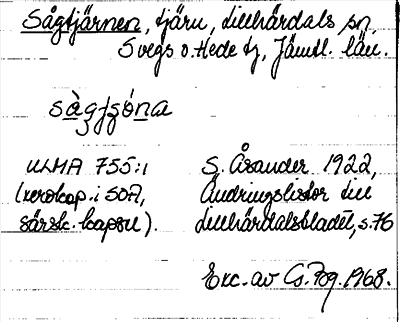 Sågtjärnen, tjärn, Lillhärdals sn,
Svegs o. Hede tg, Jämtl. län.
sàgʒʂóna
ULMA 755:1
(xerokop. i SOA,
särsk. kapsel).
S. Åsander 1922,
Ändringslistor till
Lillhärdalsbladet, s. 76
Exc. av Cs. Fog. 1968.